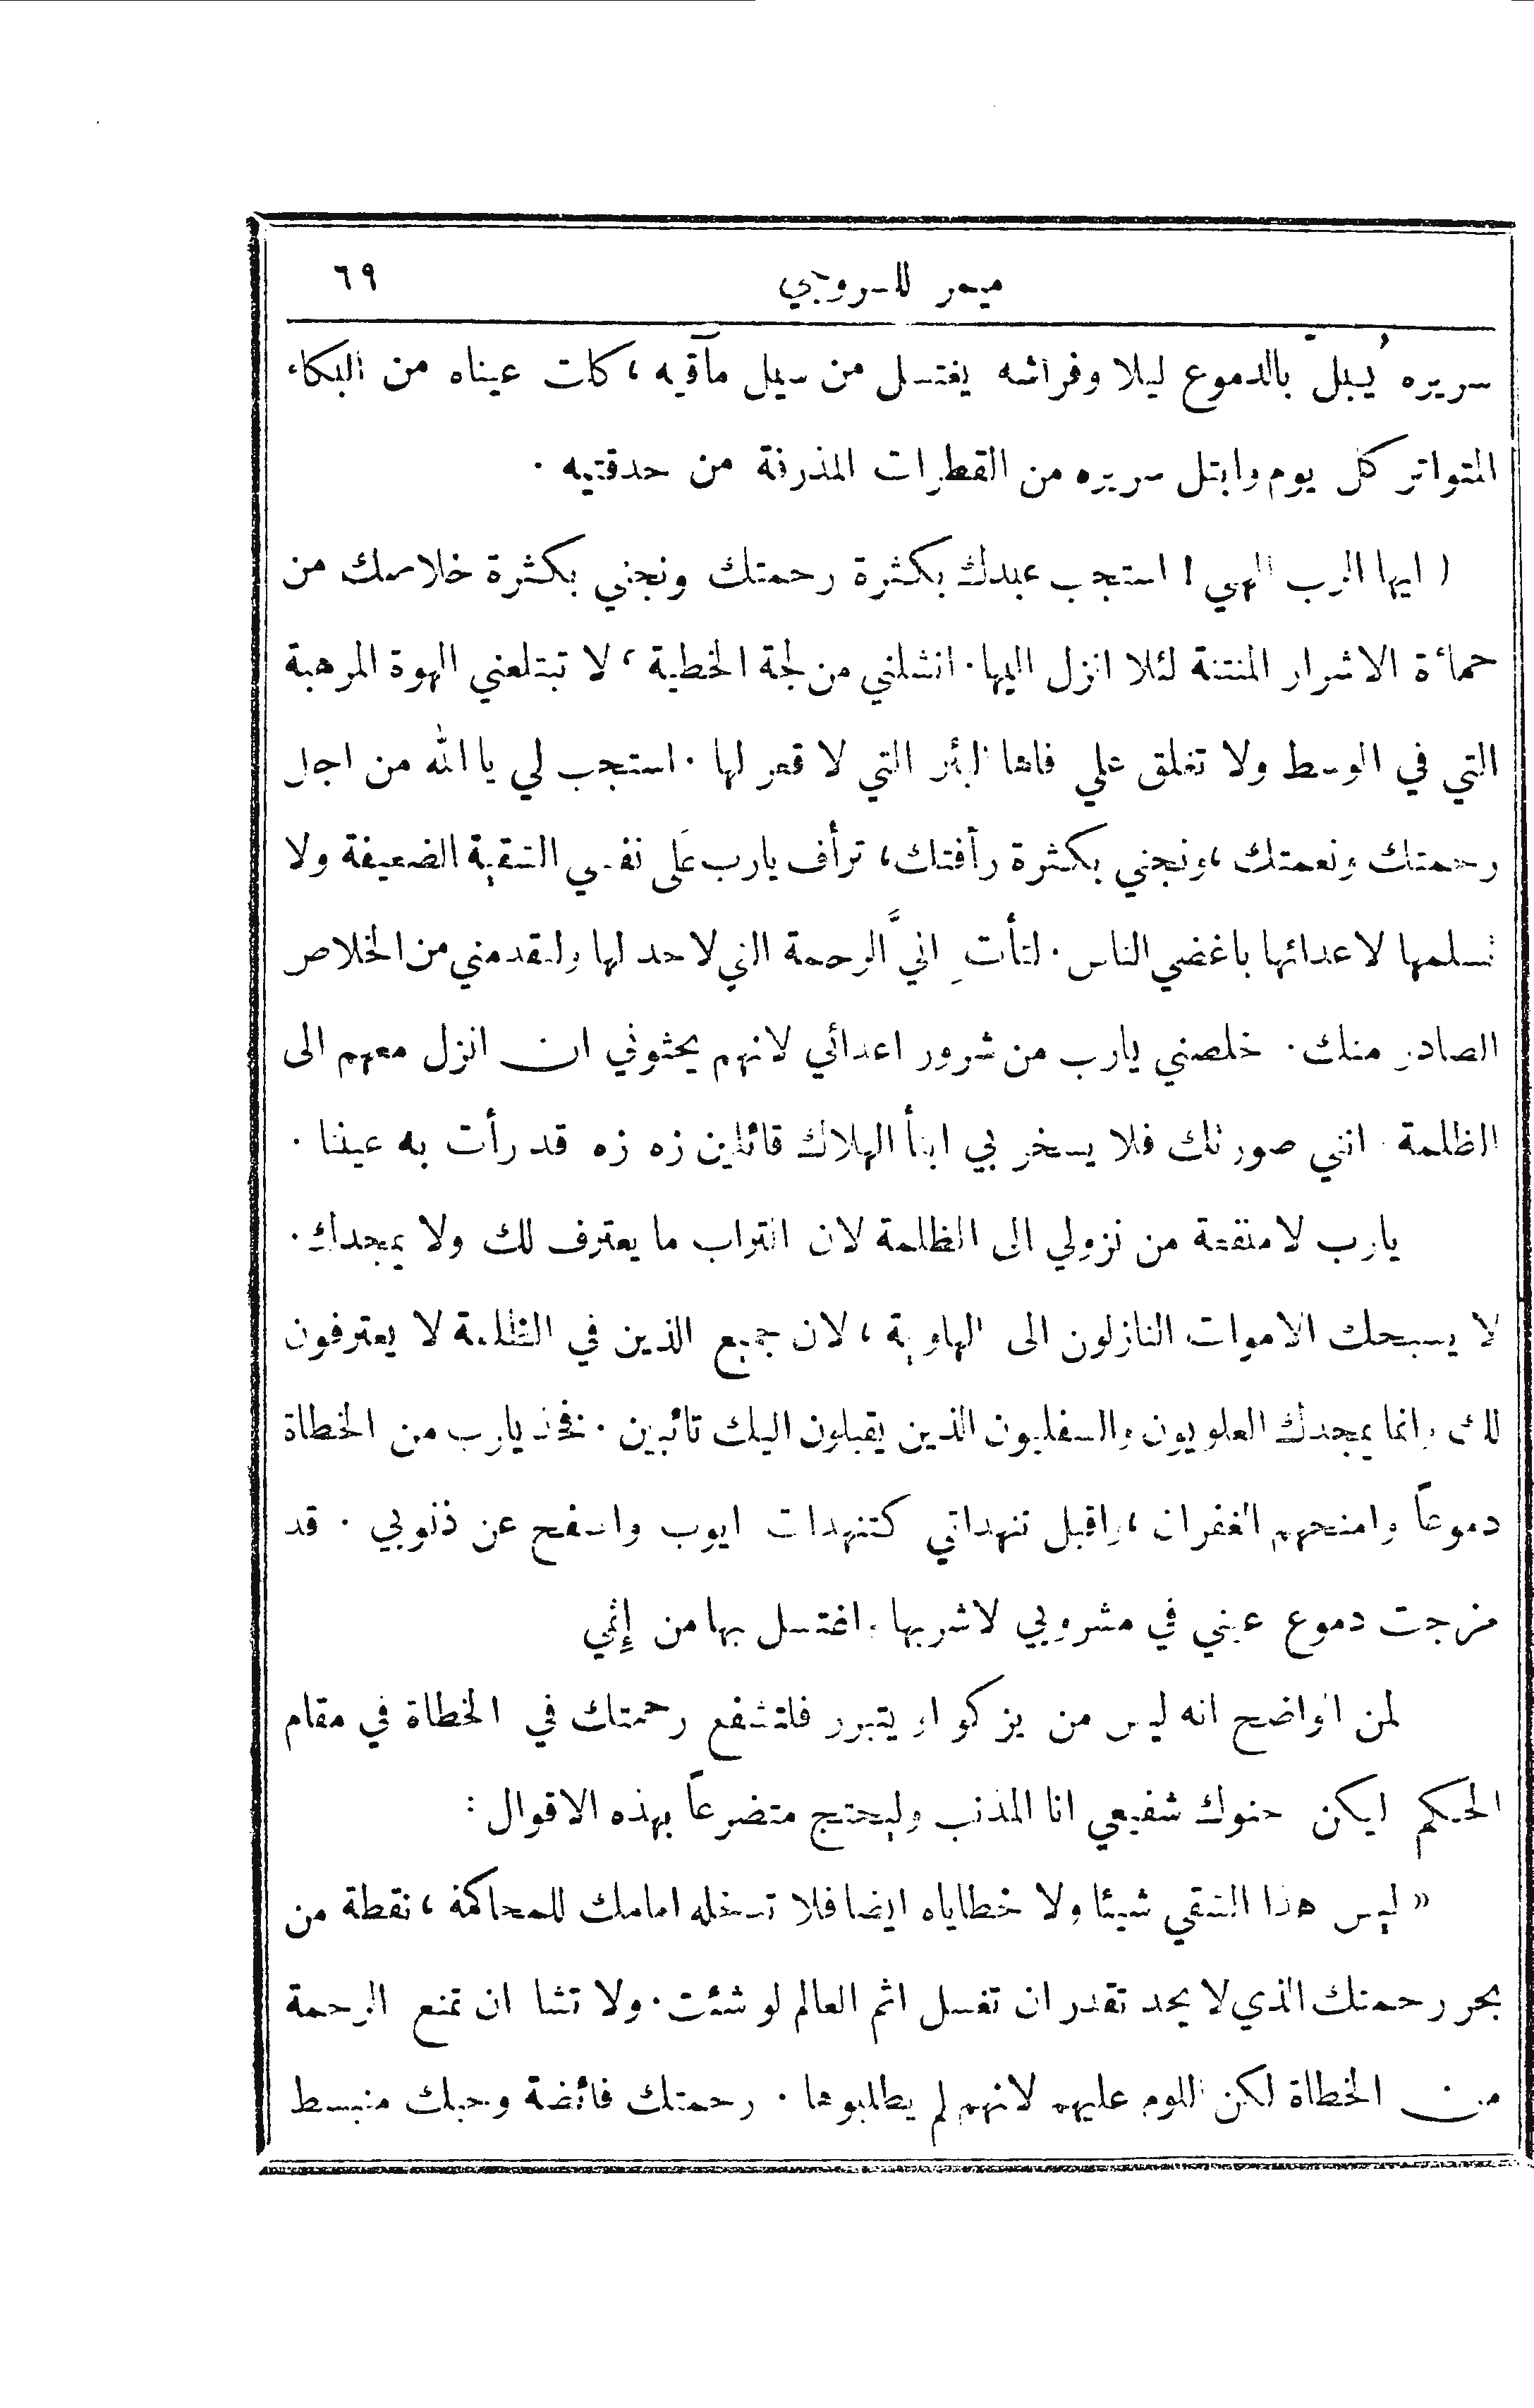 ميمر للسروجي ٦٩
سريره يُبلّ بالدموع ليلا وفراشه يغتسل من سيل مآقيه، كلت عيناه من البكاء
المتواتر كل يوم وابتل سريره من القطرات المذرفة من حدقتيه ٠
( ايها الرب الهي ! استجب عبدك بكثرة رحمتك ونجني بكثرة خلاصك من
حمأة الاشرار المنتنة لئلا انزل اليها ٠ انشلني من لجة الخطية، لا تبتلعني الهوة المرهبة
التي في الوسط ولا تغلق علي فاها البئر التي لا قعر لها ٠ استجب لي يا الله من اجل
رحمتك ونعمتك، ونجني بكثرة رأفتك، ترأف يارب عَلى نفسي الشقية الضعيفة ولا
تسلمها لاعدائها باغضي الناس ٠ لتأتِ اليَّ الرحمة التي لا حد لها ولتقدمني من الخلاص
الصادر منك ٠ خلصني يارب من شرور اعدائي لانهم يحثوني ان انزل معهم الى
الظلمة ٠ انني صورتك فلا يسخر بي ابنأ الهلاك قائلين زه زه قد رأت به عيننا ٠
يارب لا منفعة من نزولي الى الظلمة لان التراب ما يعترف لك ولا يمجدك ٠
لا يسبحك الاموات النازلون الى الهاوية، لان جميع الذين في الظلمة لا يعترفون
لك وانما يمجدك العلويون والسفليون الذين يقبلون اليك تائبين ٠ فخذ يارب من الخطاة
دموعاً وامنحهم الغفران، واقبل تنهداتي كتنهدات ايوب واصفح عن ذنوبي ٠ قد
مزجت دموع عيني في مشروبي لاشربها واغتسل بها من إثمي
لمن الواضح انه ليس من يزكو او يتبرر فلتشفع رحمتك في الخطاة في مقام
الحكم ليكن حنوك شفيعي انا المذنب وليحتج متضرعاً بهذه الاقوال :
« ليس هذا الشقي شيئا ولا خطاياه ايضا فلا تدخله امامك للمحاكمة، نقطة من
بحر رحمتك الذي لا يحد تقدر ان تغسل اثم العالم لو شئت ٠ ولا تشا ان تمنع الرحمة
من الخطاة لكن اللوم عليهم لانهم لم يطلبوها ٠ رحمتك فائضة وحبك منبسط